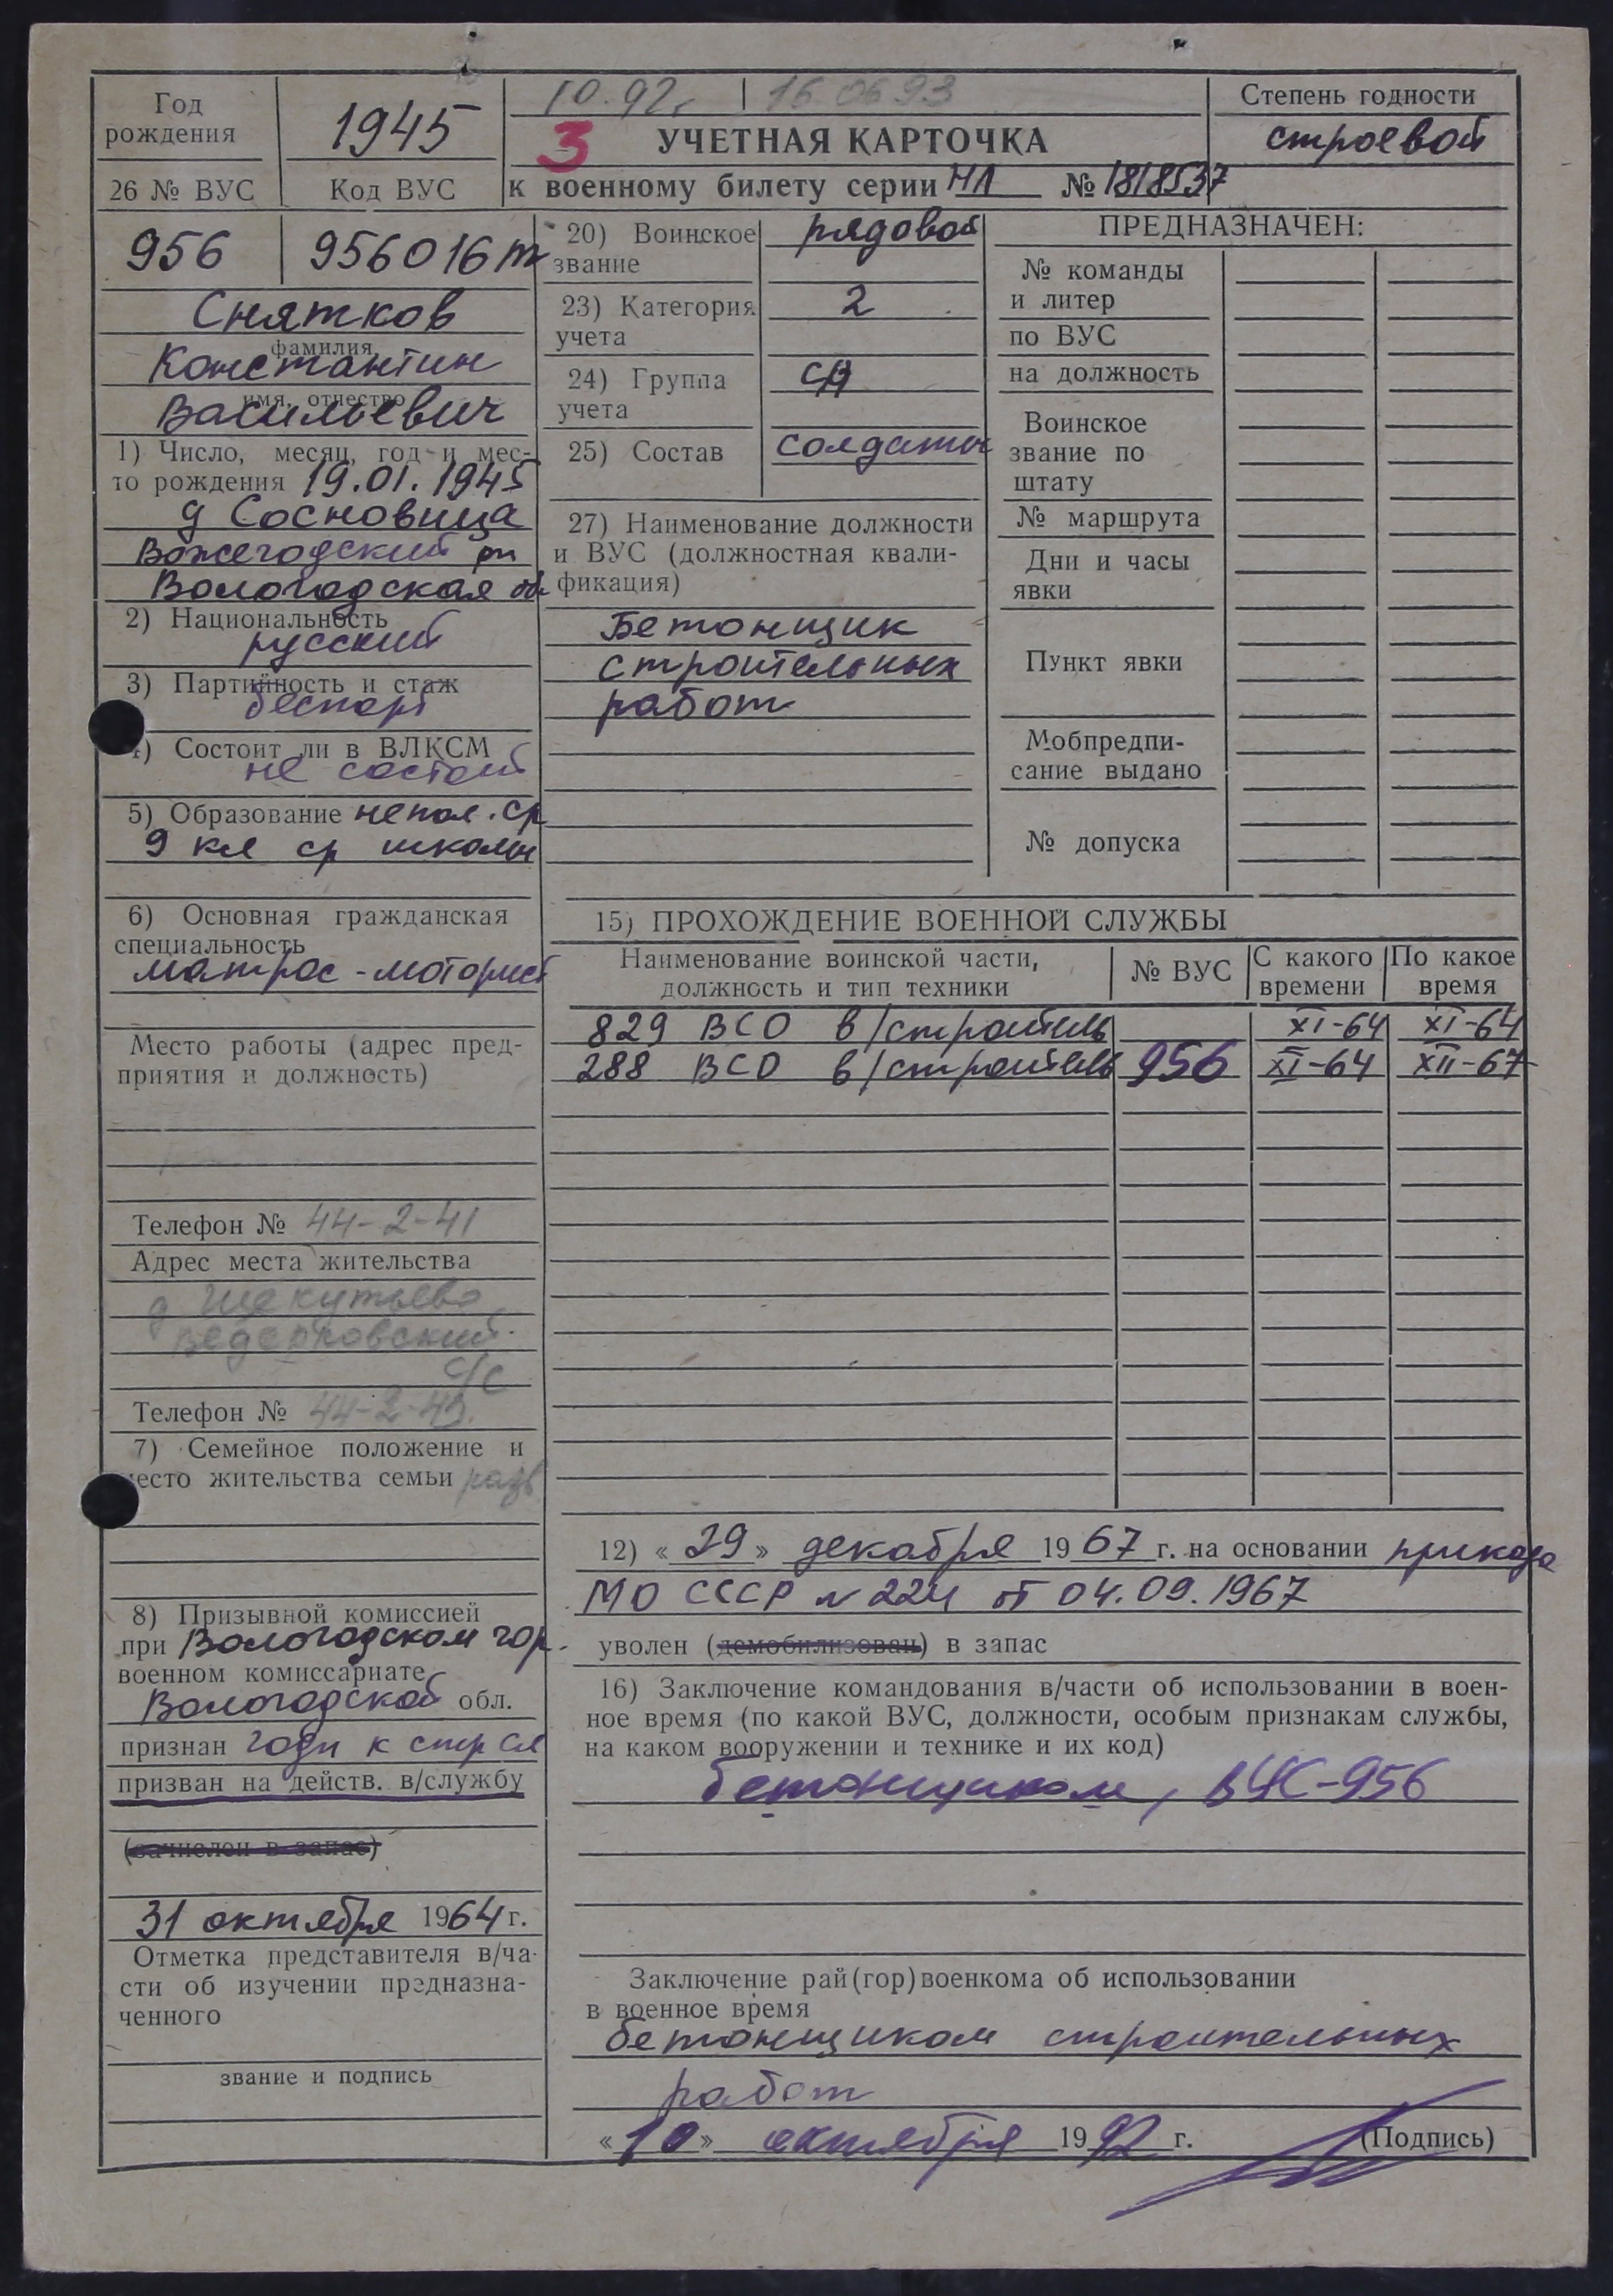 10.92г. 16.06.93
Год рождения
1945
3 УЧЕТНАЯ КАРТОЧКА
к военному билету серии НЛ № 1818537
Степень годности
строевой
26 № ВУС
Код ВУС
956
956016т
Снятков
фамилия
Константин
имя, отчество
Васильевич
1) Число, месяц, год и мес-
то рождения 19.01.1945
д Сосновица
Вожегодский рн
Вологодская обл
2) Национальность
русский
3) Партийность и стаж
беспарт
4) Состоит ли в ВЛКСМ
не состоит
5) Образование непол. ср
9 кл ср школы
6) Основная гражданская
специальность
матрос-моторист
Место работы (адрес пред-
приятия и должность)
Телефон № 44-2-41
Адрес места жительства
д Щекутьево
Ведерковский
с/с
Телефон № 44-2-43.
7) Семейное положение и
место жительства семьи разв
8) Призывной комиссией
при Вологодском гор.
военном комиссариате
Вологодской обл.
признан годн к стр сл
призван на действ. в/службу
(зачислен в запас)
31 октября 1964 г.
Отметка представителя в/ча-
сти об изучении предназна-
ченного
звание и подпись
20) Воинское
звание
рядовой
23) Категория
учета
2
24) Группа
учета
СА
25) Состав
солдаты
27) Наименование должности
и ВУС (должностная квали-
фикация)
Бетонщик
строительных
работ
ПРЕДНАЗНАЧЕН:
№ команды
и литер
по ВУС
на должность
Воинское
звание по
штату
№ маршрута
Дни и часы
явки
Пункт явки
Мобпредпи-
сание выдано
№ допуска
15) ПРОХОЖДЕНИЕ ВОЕННОЙ СЛУЖБЫ
Наименование воинской части,
должность и тип техники
№ ВУС
С какого
времени
По какое
время
829 ВСО в/строитель XI-64 XI-64
288 ВСО в/строитель 956 XI-64 XII-67
12) «29» декабря 1967 г. на основании приказа
МО СССР №224 от 04.09.1967
уволен (демобилизован) в запас
16) Заключение командования в/части об использовании в воен-
ное время (по какой ВУС, должности, особым признакам службы,
на каком вооружении и технике и их код)
бетонщиком, ВУС-956
Заключение рай(гор)военкома об использовании
в военное время
бетонщиком строительных
работ
«10» октября 1992 г. (Подпись)